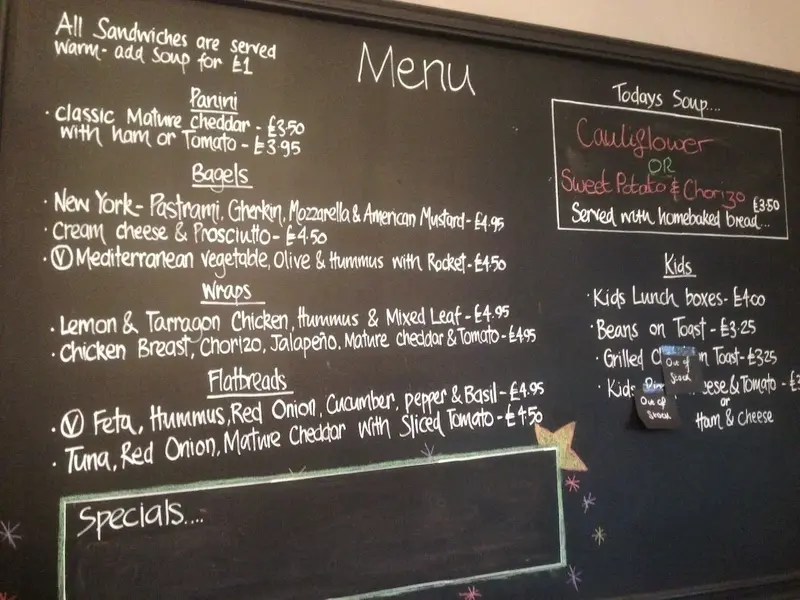 All Sandwiches are served
warm- add soup for £1
Menu
Panini
· Classic Mature Cheddar - £3.50
with ham or Tomato - £3.95
Bagels
· New York- Pastrami, Gherkin, Mozzarella & American Mustard - £4.95
· Cream cheese & Prosciutto - £4.50
· Ⓥ Mediterranean vegetable, Olive & Hummus with Rocket - £4.50
Wraps
· Lemon & Tarragon Chicken, Hummus & Mixed Leaf - £4.95
· Chicken Breast, Chorizo, Jalapeño, Mature cheddar & Tomato - £4.95
Flatbreads
· Ⓥ Feta, Hummus, Red Onion, Cucumber, pepper & Basil - £4.95
· Tuna, Red Onion, Mature Cheddar with Sliced Tomato - £4.50
Specials....
Todays Soup...
Cauliflower
OR
Sweet Potato & Chorizo £3.50
Served with homebaked bread...
Kids
· Kids Lunch boxes - £4.00
· Beans on Toast - £3.25
· Grilled Toast - £3.25
Out of
Stock
· Kids & Tomato -
Out of
Stock
or
Ham & Cheese